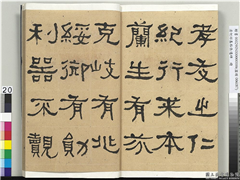 孝友之仁
紀行来本
蘭生有芬
克岐有兆
綏御有勛
利器不覿
20